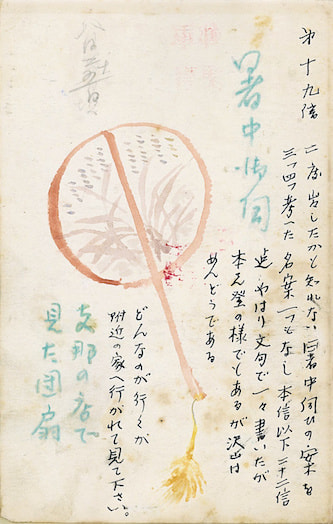 第十九信 二度出したかも知れない 暑中伺ひの案を
三つ四つ考へた 名案一つもなし 本信以下二十二信
迄 やはり文句で一々書いたが
本元登の様でもあるが沢山は
めんどうである
どんなのが行くか
附近の家へ行かれて見て下さい。
暑中御伺
支那の店で
見た団扇